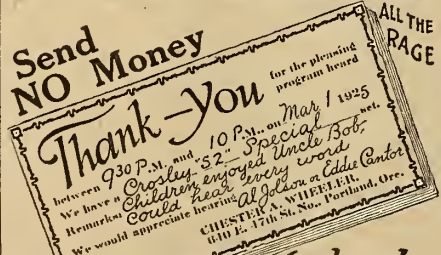 Send
NO Money
ALL THE
RAGE
Thank-You for the pleasing
program heard
between 930 P.M. and 10 P.M., on Mar 1 1925
We have a Crosley "52" Special set.
Remarks: Children enjoyed Uncle Bob,
Could hear every word
We would appreciate hearing Al Jolson or Eddie Cantor
CHESTER A. WHEELER,
640 E. 17th St. No., Portland, Ore.